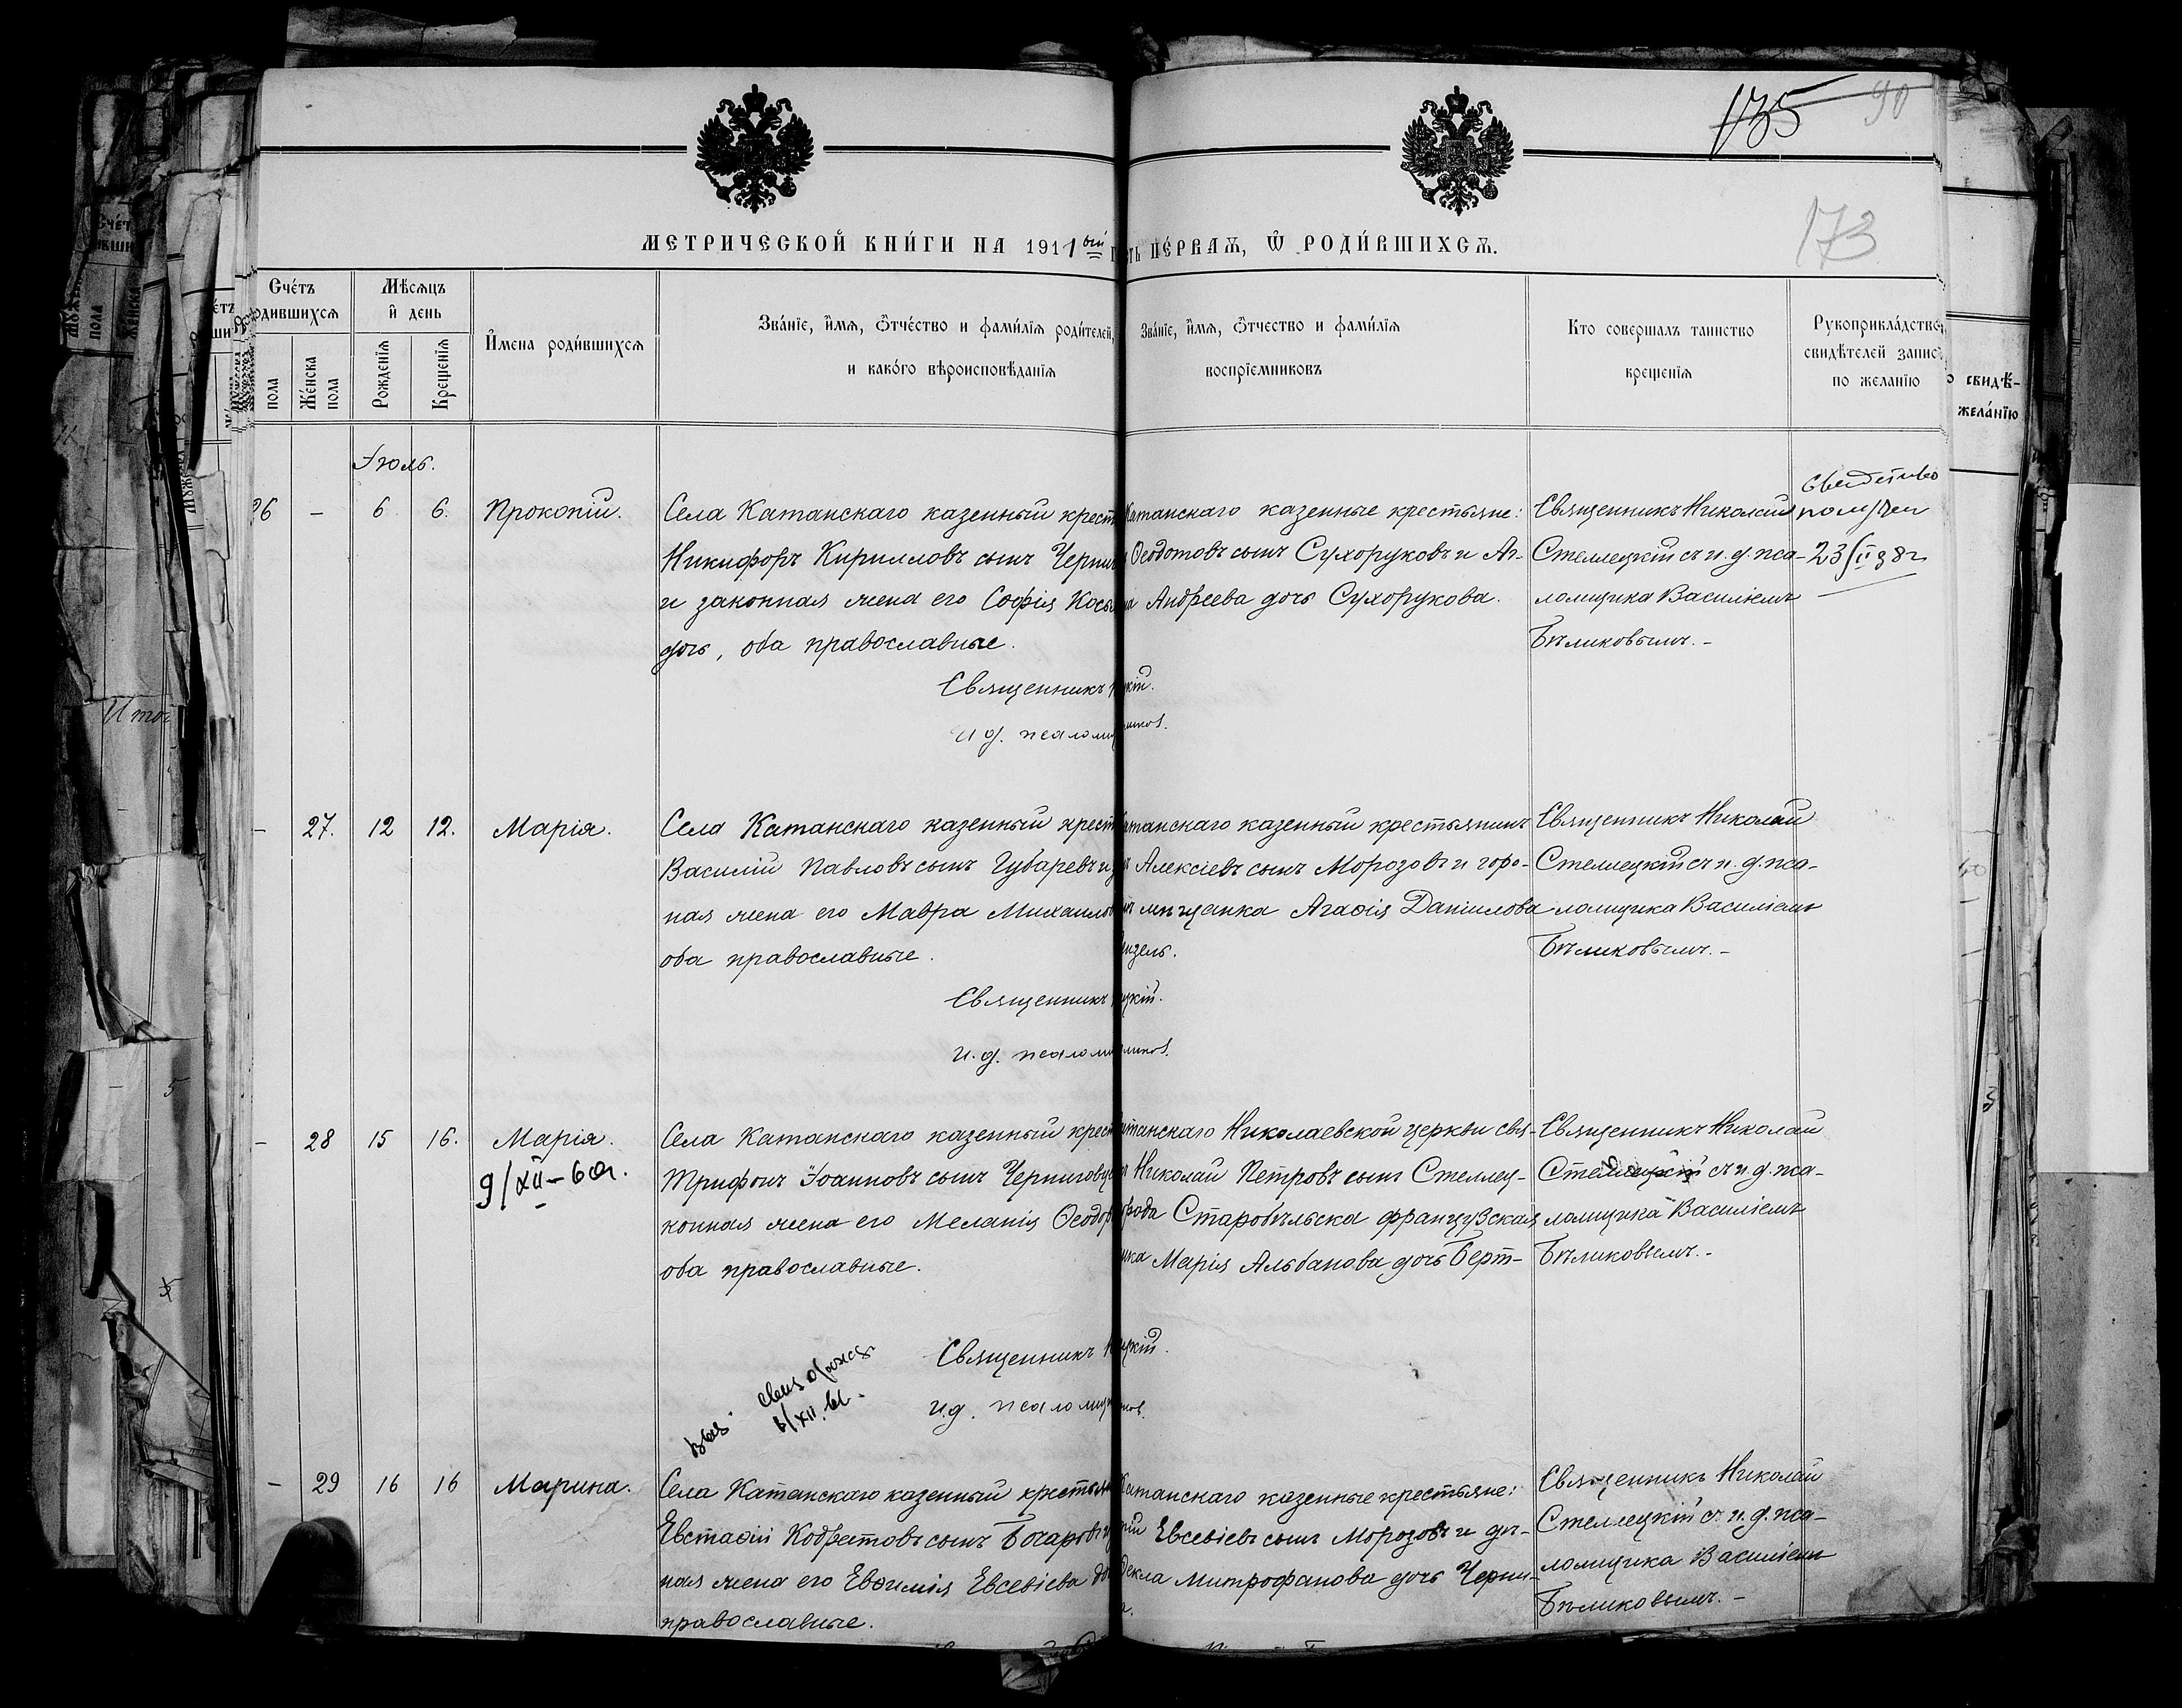 135 90
173
МЕТРИЧЕСКОЙ КНИ́ГИ НА 1911ый ть ПЕ́РВАѦ, Ѿ РОДИ́ВШИХСѦ.
Сче́тъ одившихсѧ
пола
Же́нска пола
Мѣсѧцъ и҆ день
Рожденїѧ
Крещенїѧ
И҆мена роди́вшихсѧ
Зва́нїе, и҆́мѧ, ѻ҆тче́ство и фами́лїѧ роди́телей,
и како́го вѣроисповѣ́данїѧ
Зва́нїе, и҆́мѧ, ѻ҆тчество и фами́лїѧ
воспрїемниковъ
Кто совершалъ таинство
крещенїѧ
Рукоприкла́дство
свидѣ́телей запис
по жела́нїю
Іюль.
26 – 6 6. Прокопій.
Села Катанскаго казенный крест
Никифоръ Кирилловъ сынъ Черниг
и законная жена его Софія Косм
дочь, оба православные.
Священникъ
и д. псаломщ
Катанскаго казенные крестьяне:
Ѳеодотовъ сынъ Сухоруковъ и Аг-
на Андреева дочь Сухорукова.
цкій.
Священникъ Николай
Стеллецкій съ и. д. пса-
ломщика Василіемъ
Бѣликовымъ. –
Свидетво
получен
23/II 38г
– 27. 12 12. Марія.
Села Катанскаго казенный крест
Василій Павловъ сынъ Губаревъ и з
ная жена его Мавра Михаилов
оба православные.
Священникъ
и. д. псаломщ
атанскаго казенный крестьянинъ
Алексіевъ сынъ Морозовъ и горо-
мѣщанка Агаѳія Даніилова
нзель.
цкій.
ликов.
Священникъ Николай
Стеллецкій съ и. д. пса-
ломщика Василіемъ
Бѣликовымъ. –
– 28 15 16. Марія.
9/XII – 60г.
Села Катанскаго казенный крест
Трифонъ Іоанновъ сынъ Черниговц
конная жена его Меланія Ѳеодор
оба православные.
Священникъ Н
и.д. псаломщ
6/XII.
атанскаго Николаевской церкви свя-
Николай Петровъ сынъ Стеллец-
города Старобѣльска французская
нка Марія Альбанова дочь Берт-
цкій.
ков.
Священникъ Николай
Стеллецкій съ и. д. пса-
ломщика Василіемъ
Бѣликовымъ. –
– 29 16 16 Марина.
Села Катанскаго казенный крестьян
Евстаѳій Кодратовъ сынъ Бочаровъ и
ная жена его Евѳимія Евсевіева до
православные.
Катанскаго казенные крестьяне:
Евсевіевъ сынъ Морозовъ и дѣ-
Ѳекла Митрофанова дочь Черни-
а.
Священникъ Николай
Стеллецкій съ и. д. пса-
ломщика Василіемъ
Бѣликовымъ. –